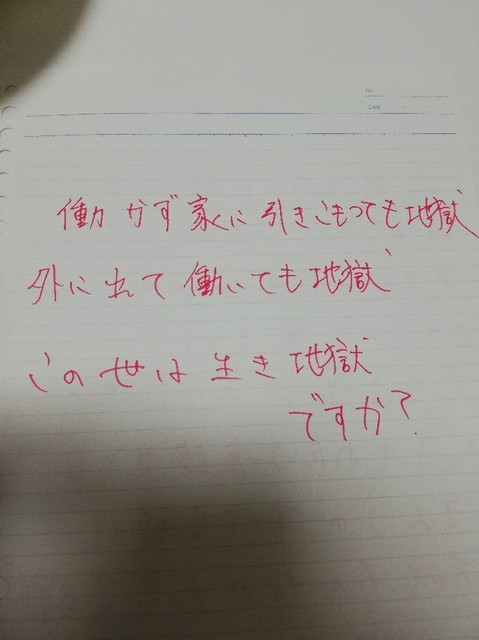 No.
働かず家に引きこもっても地獄
外に出て働いても地獄
この世は生き地獄
ですか?